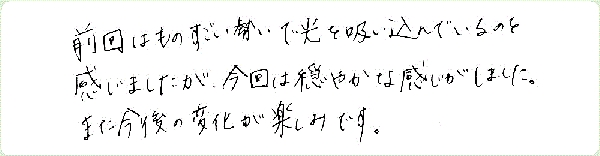 前回はものすごい勢いで光を吸い込んでいるのを
感じましたが、今回は穏やかな感じがしました。
また今後の変化が楽しみです。